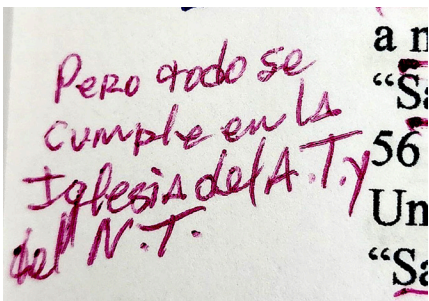 Pero todo se
cumple en la
Iglesia del A.T. y
del N.T.
a
"Sa
56
Un
"Sa